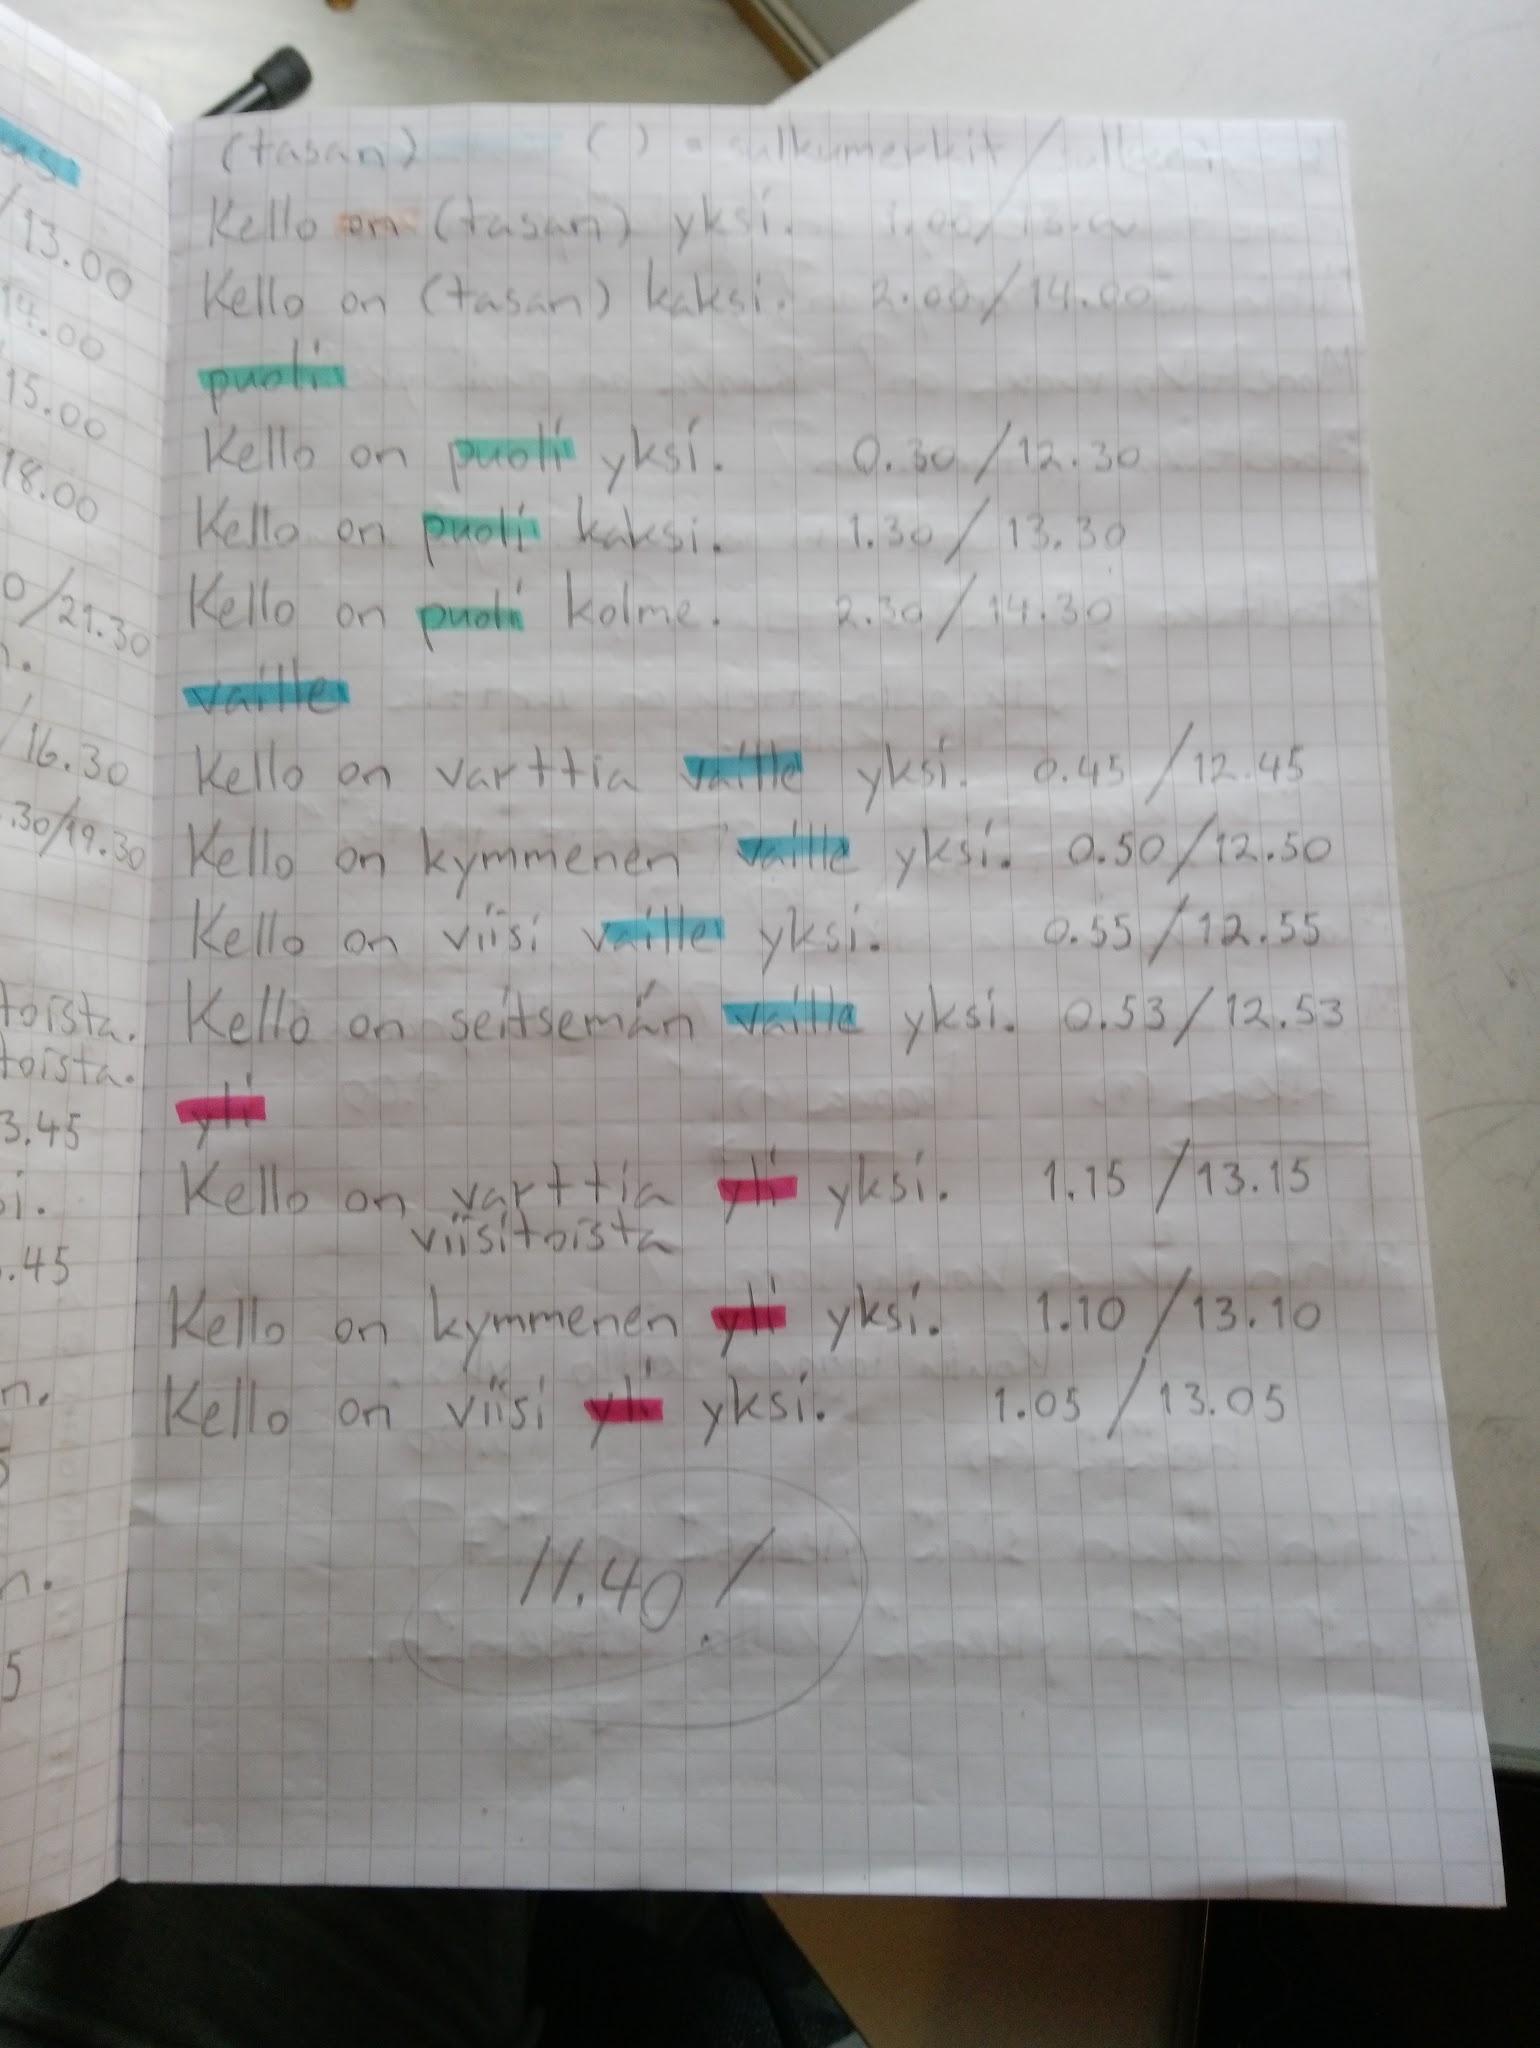 /13.00
14.00
15.00
18.00
0/21.30
n.
/16.30
.30/19.30
toista.
toista.
3.45
si.
.45
n.
5
n.
5
(tasan) ( ) = sulkumerkit /
Kello on (tasan) yksi. 1.00/13.00
Kello on (tasan) kaksi. 2.00/14.00
puoli
Kello on puoli yksi. 0.30/12.30
Kello on puoli kaksi. 1.30/13.30
Kello on puoli kolme. 2.30/14.30
vaille
Kello on varttia vaille yksi. 0.45/12.45
Kello on kymmenen vaille yksi. 0.50/12.50
Kello on viisi vaille yksi. 0.55/12.55
Kello on seitsemän vaille yksi. 0.53/12.53
yli
Kello on varttia yli yksi. 1.15/13.15
viisitoista
Kello on kymmenen yli yksi. 1.10/13.10
Kello on viisi yli yksi. 1.05/13.05
11.40!